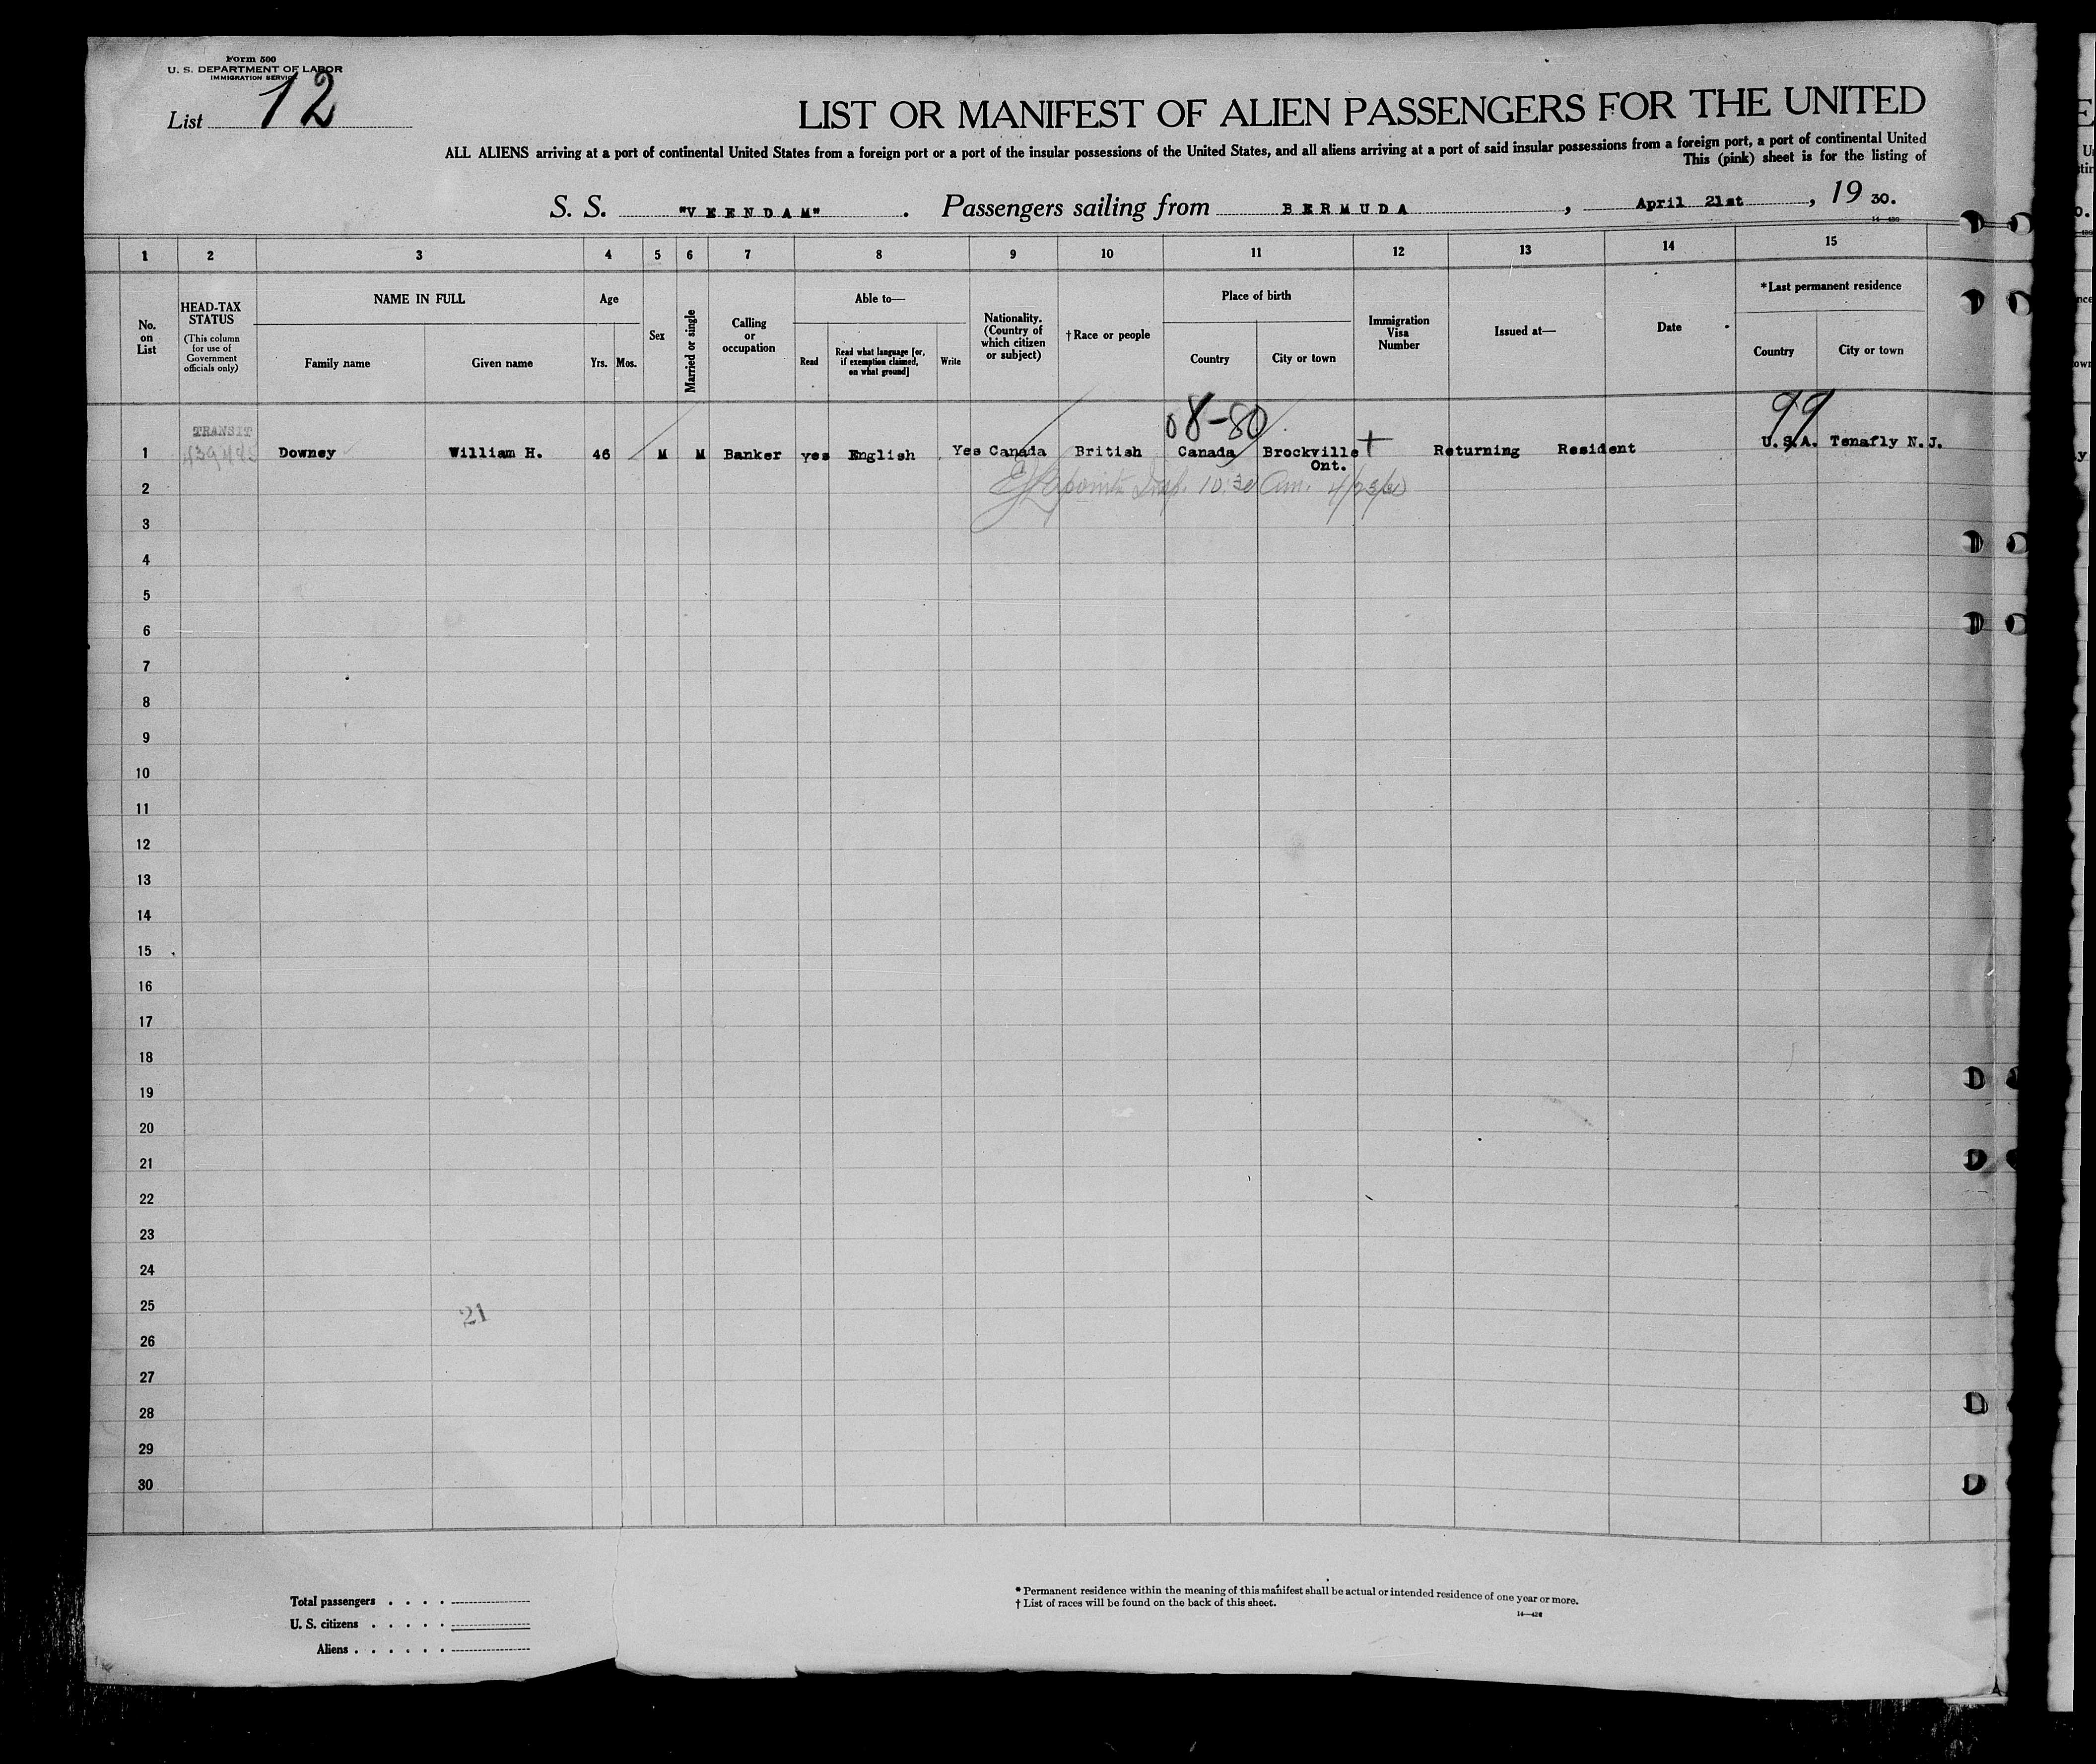 Form 500
U. S. DEPARTMENT OF LABOR
IMMIGRATION SERVICE
List 12
LIST OR MANIFEST OF ALIEN PASSENGERS FOR THE UNITED
ALL ALIENS arriving at a port of continental United States from a foreign port or a port of the insular possessions of the United States, and all aliens arriving at a port of said insular possessions from a foreign port, a port of continental United
This (pink) sheet is for the listing of
S. S. "VEENDAM". Passengers sailing from BERMUDA, April 21st, 19 30.
1 2 3 4 5 6 7 8 9 10 11 12 13 14 15
No. on List
HEAD-TAX STATUS
(This column for use of Government officials only)
NAME IN FULL
Family name
Given name
Age
Yrs. Mos.
Sex
Married or single
Calling or occupation
Able to—
Read
Read what language [or, if exemption claimed, on what ground]
Write
Nationality. (Country of which citizen or subject)
†Race or people
Place of birth
Country
City or town
Immigration Visa Number
Issued at—
Date
*Last permanent residence
Country
City or town
08-80
99
TRANSIT
1 Downey William H. 46 M M Banker yes English Yes Canada British Canada Brockville Returning Resident U.S.A. Tenafly N.J.
Ont.
2 Insp. 10:30 Am. 4/23/30
3
4
5
6
7
8
9
10
11
12
13
14
15
16
17
18
19
20
21
22
23
24
25
21
26
27
28
29
30
Total passengers
U. S. citizens
Aliens
* Permanent residence within the meaning of this manifest shall be actual or intended residence of one year or more.
† List of races will be found on the back of this sheet.